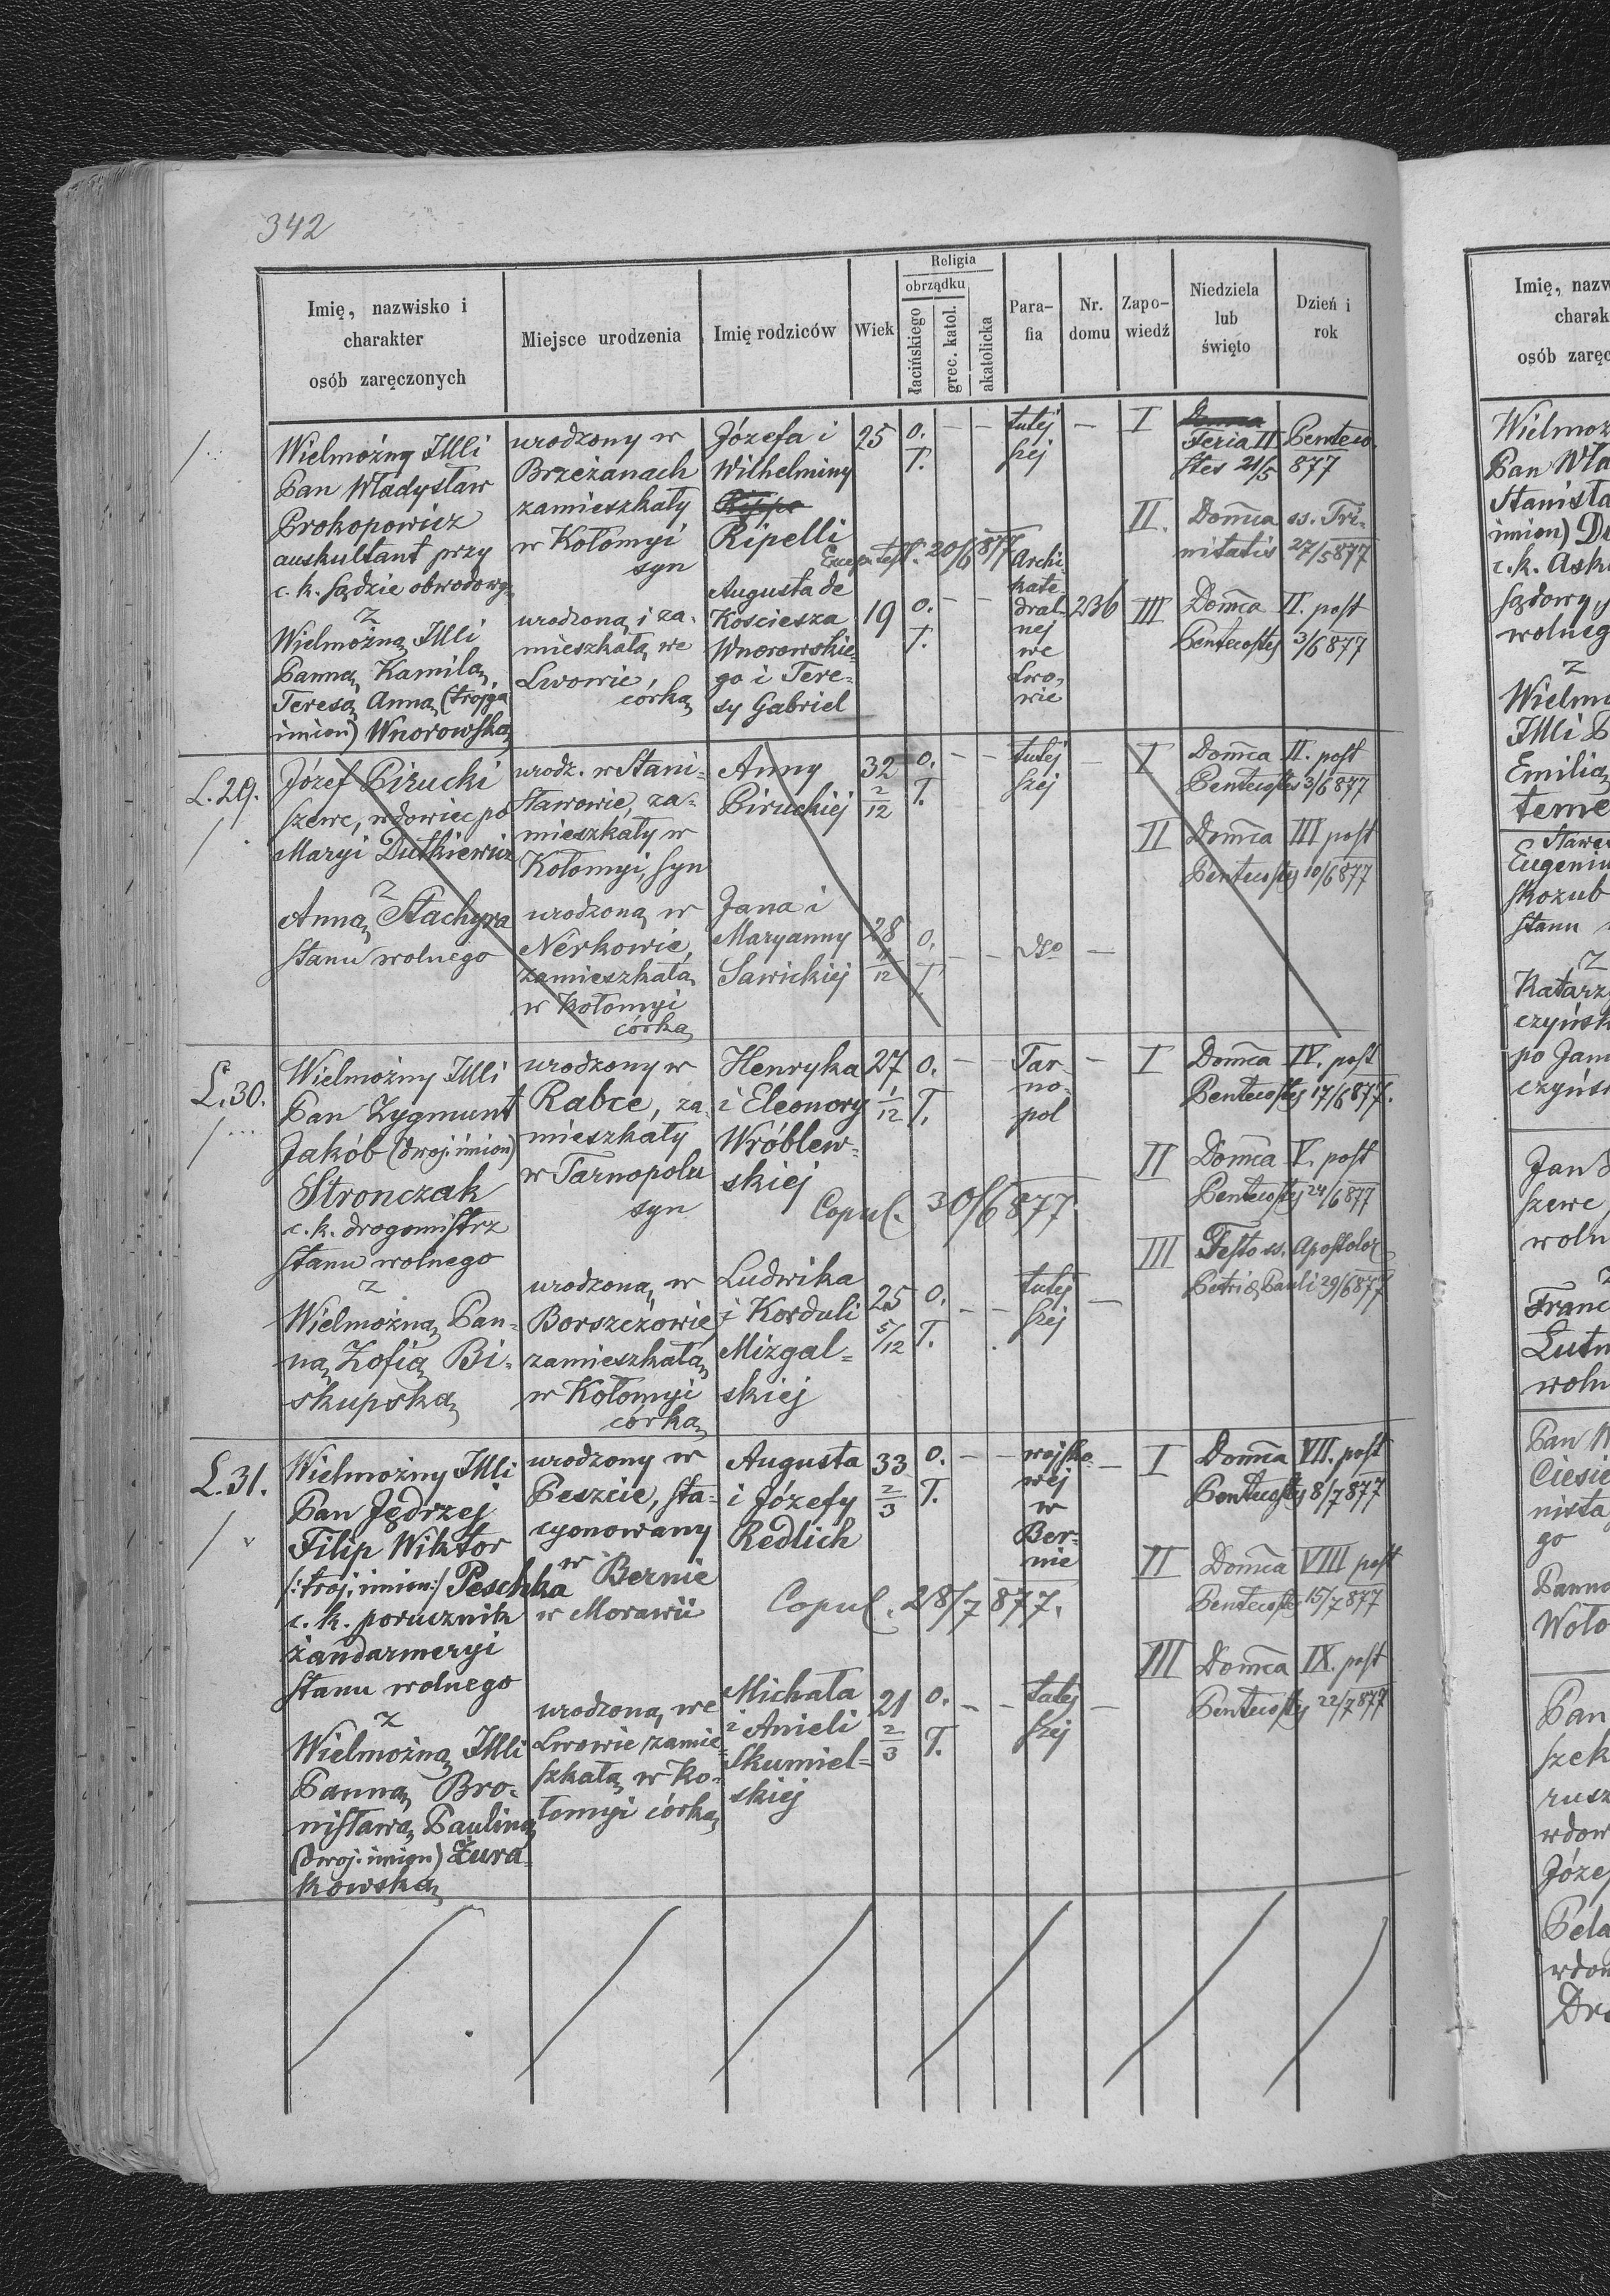 342
Imię, nazwisko i
charakter
osób zaręczonych
Miejsce urodzenia
Imię rodziców
Wiek
Religia
obrządku
łacińskiego
grec. katol.
akatolicka
Para-
fia
Nr.
domu
Zapo-
wiedź
Niedziela
lub
święto
Dzień i
rok
Wielmożny JMli
Pan Władysław
Prokopowicz
auskultant przy
c. k. sądzie obwodowy
z
Wielmożną JMli
Panną Kamilą
Teresą Anną (trojga
imion) Wnorowską
urodzony w
Brzeżanach
zamieszkały
w Kołomyi
syn
urodzoną i za-
mieszkałą we
Lwowie,
córką
Józefa i
Wilhelminy
Ripelli
Augusta de
Kościesza
Wnorowskie-
go i Tere-
sy Gabriel
25
o.
T.
tutej
szej
20/6 877
19
o.
T.
Archi
kate
dral-
nej
we
Lwo-
wie
236
I
Feria II Penteco-
stes 21/5 877
II.
Domca ss. Tri-
nitatis 27/5 877
III
Domca II. post
Pentecostes 3/6 877
L. 29.
Józef Pirucki
szewc, wdowiec po
Maryi Dutkiewicz
z
Anną Stachyra
stanu wolnego
urodz. w Stani-
sławowie, za-
mieszkały w
Kołomyi, syn
urodzoną w
Nerkowie,
zamieszkałą
w Kołomyi
córką
Anny
Piruckiej
Jana i
Maryanny
Sawickiej
32
2/12
o.
T.
tutej
szej
28
11/12
o.
T.
dto
I
Domca II. post
Pentecostes 3/6 877
II
Domca III post
Pentecostes 10/6 877
L. 30.
Wielmożny JMli
Pan Zygmunt
Jakób (dwoj. imion)
Stronczak
c. k. drogomistrz
stanu wolnego
z
Wielmożną Pan-
ną Zofią Bi-
skupską
urodzony w
Rabce, za-
mieszkały
w Tarnopolu
syn
urodzoną w
Borszczowie,
zamieszkałą
w Kołomyi
córką
Henryka
i Eleonory
Wróblew-
skiej
Copul. 30/6 877
Ludwika
i Korduli
Mizgal-
skiej
27
1/12
o.
T.
Tar
no-
pol
25
5/12
o.
T.
tutej
szej
I
Domca IV. post
Pentecostes 17/6 877.
II
Domca V. post
Pentecostes 24/6 877
III
Festo ss. Apostolor
Petri & Pauli 29/6 877
L. 31.
Wielmożny JMli
Pan Jędrzej
Filip Wiktor
/:troj. imion:/ Peschka
c. k. porucznik
żandarmeryi
stanu wolnego
z
Wielmożną JMli
Panną Bro-
nisławą Pauliną
(dwoj. imion) Żura-
kowską
urodzony w
Peszcie, sta-
cyonowany
w Bernie
w Morawii
urodzoną we
Lwowie zamie-
szkałą w Ko-
łomyi córką
Augusta
i Józefy
Redlich
Copul. 28/7 877.
Michała
i Anieli
Skumiel-
skiej
33
2/3
o.
T.
wojsko
wej
w
Ber-
nie
21
2/3
o.
T.
tutej
szej
I
Domca VII. post
Pentecostes 8/7 877
II
Domca VIII post
Pentecostes 15/7 877
III
Domca IX. post
Pentecostes 22/7 877
Imię, nazw
charak
osób zaręc
Wielmoż
Pan Wła
Stanisła
imion)
c. k. Ask
sądowy,
wolneg
z
Wielmo
JMli P
Emilią
teme
Eugeniu
skozub
stanu
z
Katarz
czyńsk
po Jan
czyńs
Jan
szewc
woln
Franc
Lutn
woln
Pan
Ciesie
nista
go
Panno
Woło
Pan
szek
rusz
wdow
Józef
Pela
wdow